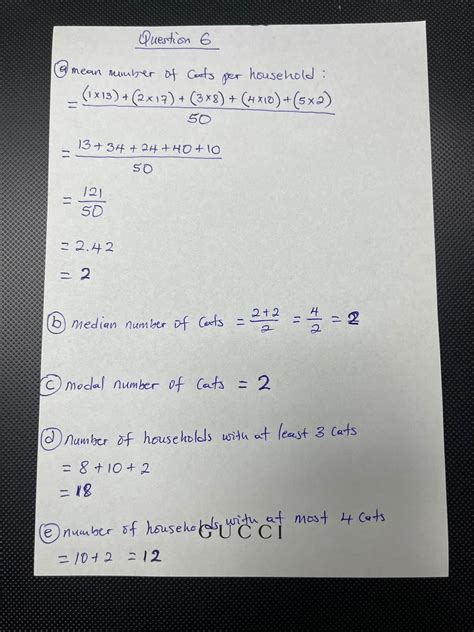 Question 6
(a) mean number of Cats per household :
= (1×13) + (2×17) + (3×8) + (4×10) + (5×2)
50
= 13 + 34 + 24 + 40 + 10
50
= 121
50
= 2.42
= 2
(b) median number of Cats = 2+2/2 = 4/2 = 2
(c) modal number of Cats = 2
(d) number of households with at least 3 Cats
= 8 + 10 + 2
= 18
(e) number of households with at most 4 Cats
GUCCI
= 10 + 2 = 12